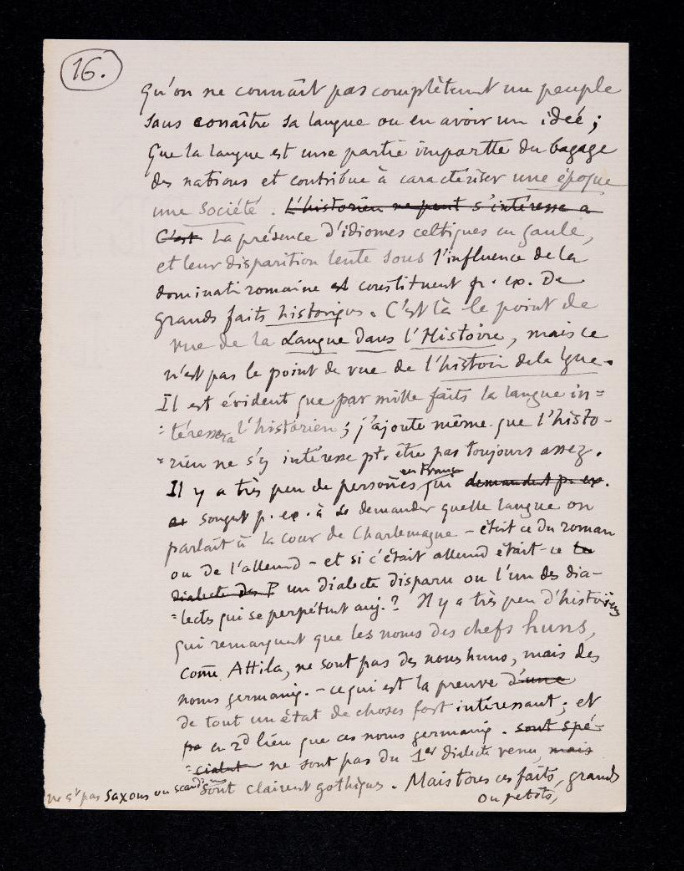 16.
qu'on ne connaît pas complètement un peuple
sans conaître sa langue ou en avoir un idée ;
que la langue est une partie importte du bagage
des nations et contribue à caractériser une époque
une société. L'historien ne peut s'intéresse a
C'est La présence d'idiomes celtiques en gaule,
et leur disparition lente sous l'influence de la
dominati romaine et constituent p. ex. De
grands faits historiqus. C'est là le point de
vue de la Langue dans l'Histoire, mais ce
n'est pas le point de vue de l'histoir de la lgue.
Il est évident que par mille faits la langue in=
=téressera l'historien ; j'ajoute même que l'histo-
=rien ne s'y intéresse pt. être pas toujours assez.
en France
Il y a très peu de personnes qui demandent p. ex.
et songent p. ex. à se demander quelle langue on
parlait à la cour de Charlemagne – était ce du roman
ou de l'allemd – et si c'était allemd était-ce le
dialecte des F un dialecte disparu ou l'un des dia-
=lectes qui se perpétuent auj.? Il y a très peu d'historiens
qui remarquent que les noms des chefs huns,
come Attila, ne sont pas des noms huns, mais des
noms germaniq. – ce qui est la preuve d'une
de tout un état de choses fort intéressant ; et
en 2d lieu que ces noms germaniq. sont spé-
=cialet ne sont pas du 1er dialecte venu, mais
ne st pas Saxons ou scandin. sont clairent gothiques. Mais tous ces faits, grands
ou petits,